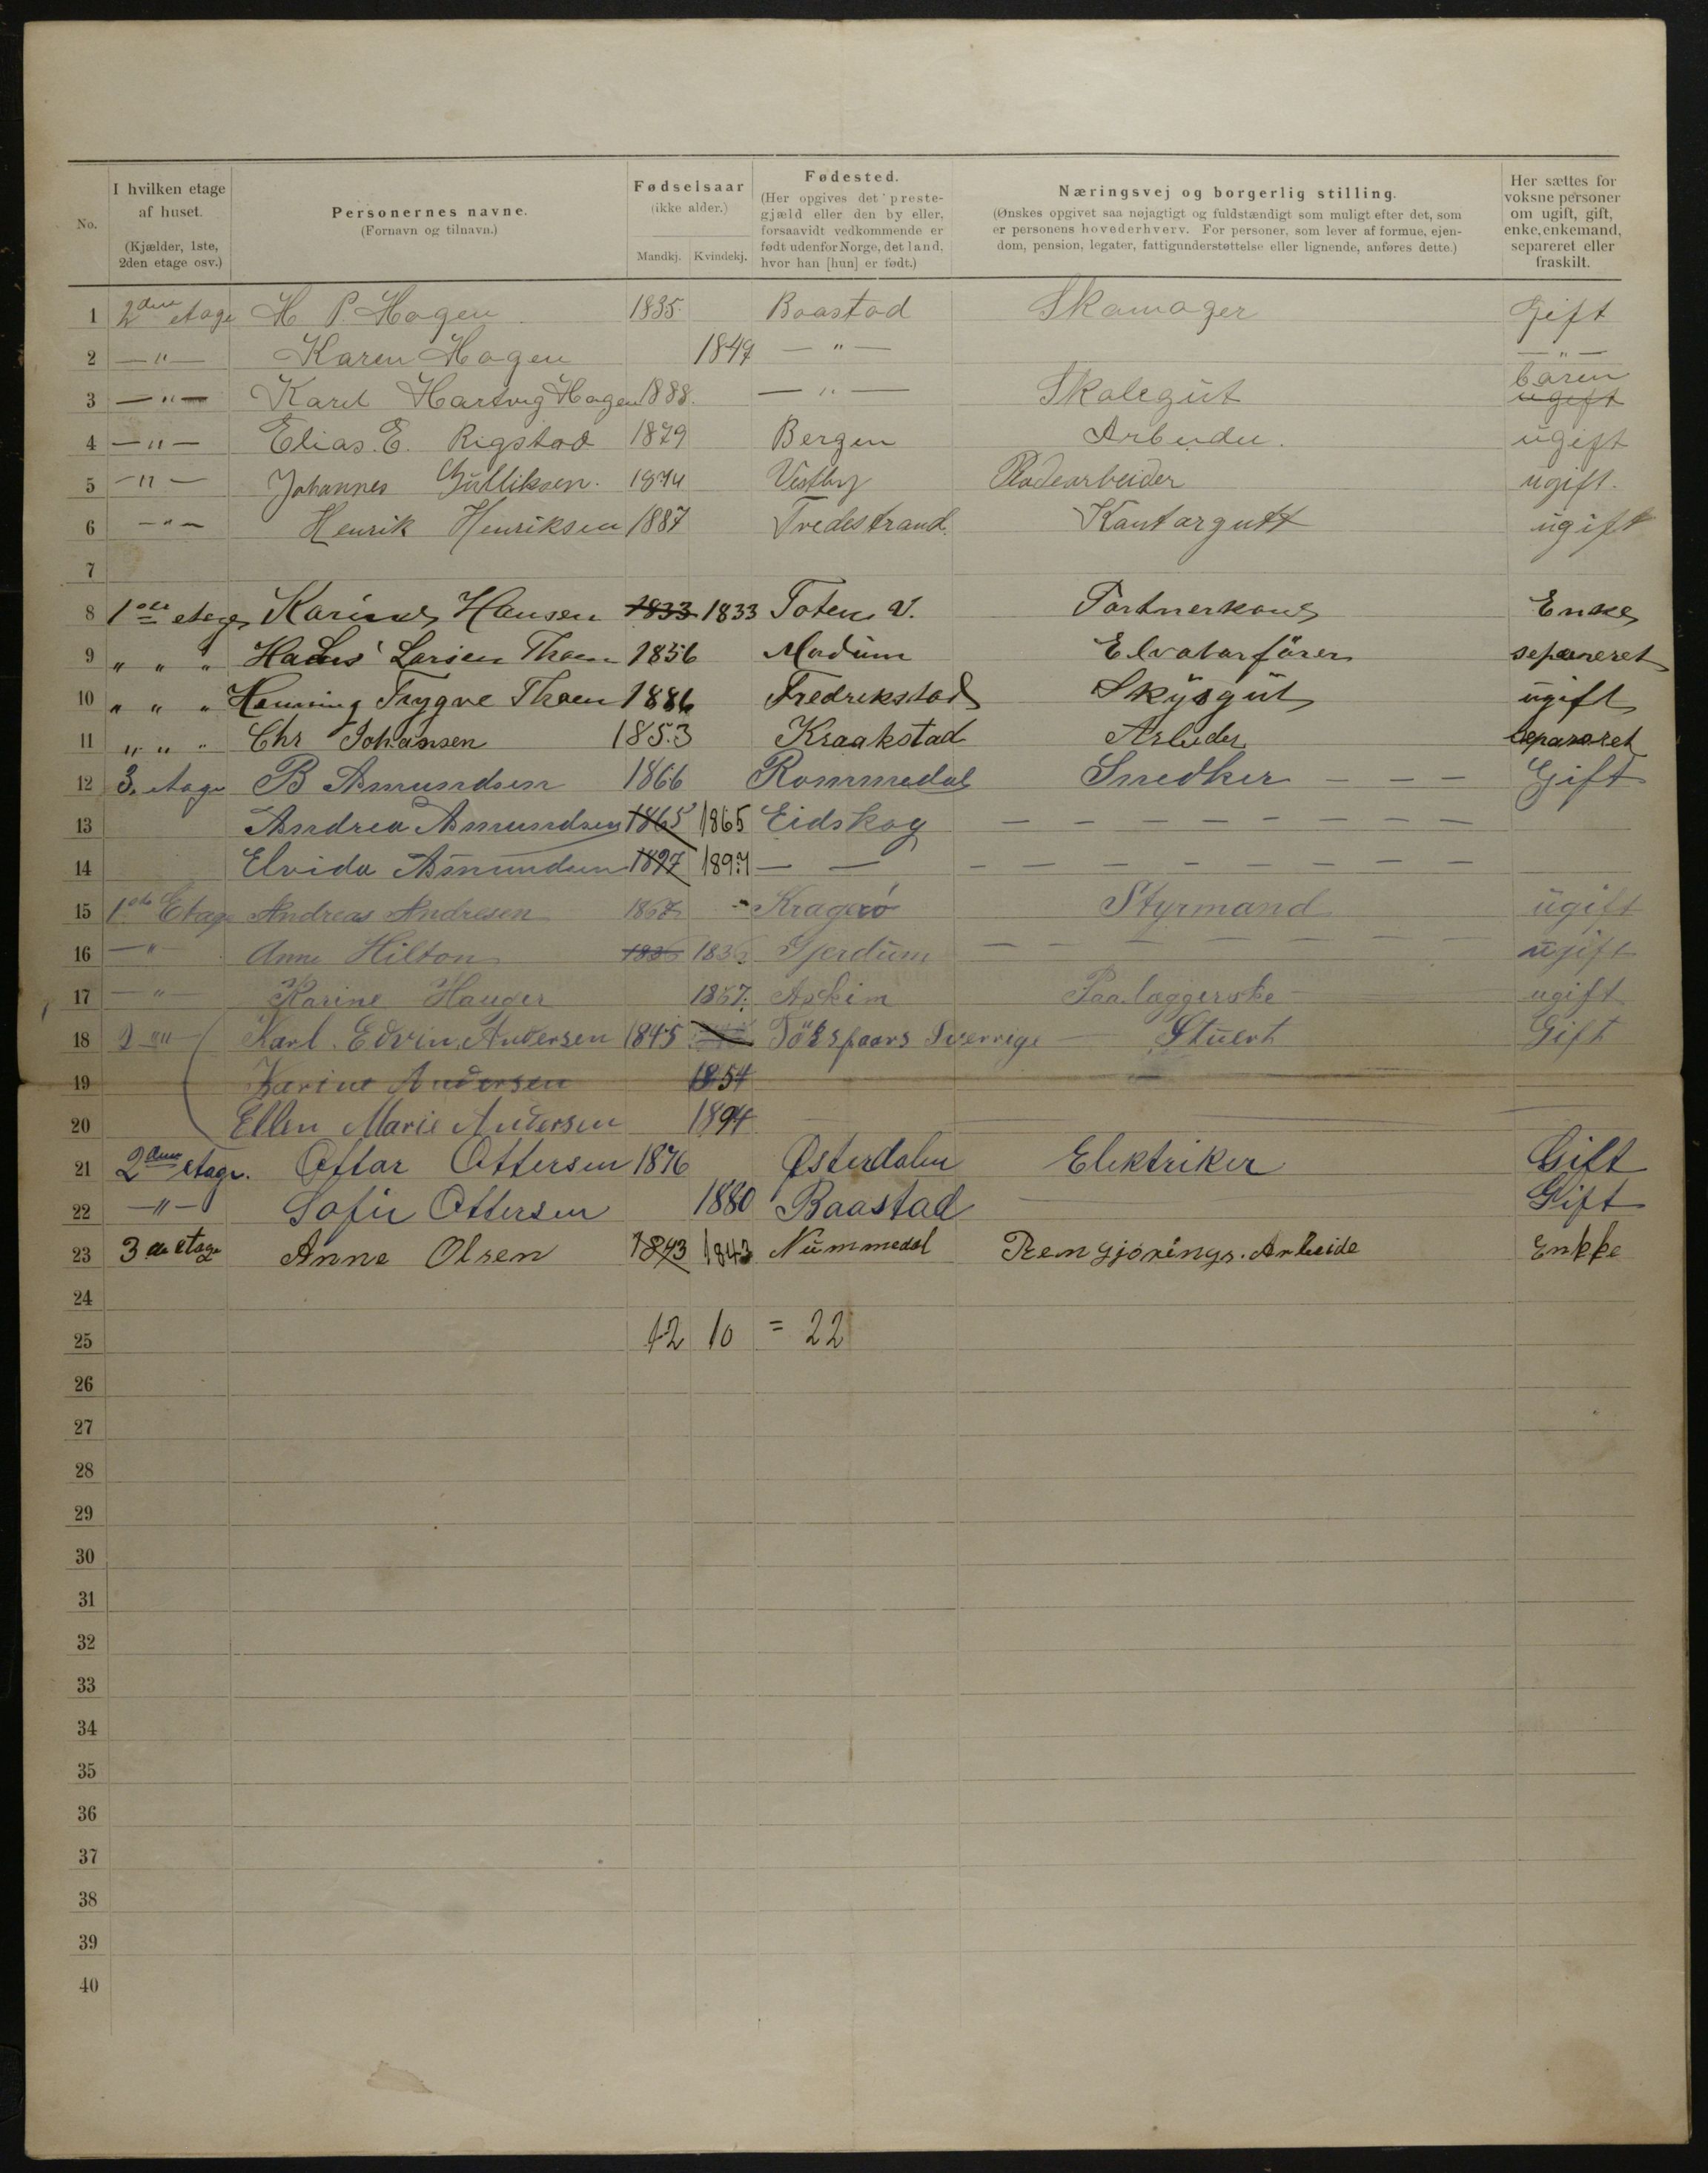 No. | I hvilken etage af huset. (Kjælder, 1ste, 2den etage osv.) | Personernes navne. (Fornavn og tilnavn.) | Fødselsaar (ikke alder.) Mandkj. Kvindekj. | Fødested. (Her opgives det prestegjæld eller den by eller, forsaavidt vedkommende er født udenfor Norge, det land, hvor han [hun] er født.) | Næringsvej og borgerlig stilling. (Ønskes opgivet saa nøjagtigt og fuldstændigt som muligt efter det, som er personens hovederhverv. For personer, som lever af formue, ejendom, pension, legater, fattigunderstøttelse eller lignende, anføres dette.) | Her sættes for voksne personer om ugift, gift, enke, enkemand, separeret eller fraskilt.
1 2den etage H P. Hagen 1835 Baastad Skamager Gift
2 —"— Karen Hagen 1849 —"— —"—
3 —"— Karel Hartvig Hagen 1888. —"— Skolegut ugift baren
4 —"— Elias. E. Rigstad 1879 Bergen Arbeider. ugift
5 —"— Johannes Gulliksen. 1874 Vestby ugift.
6 —"— Henrik Henriksen 1887 Tvedestrand. Kantorgutt ugift
7
8 1ste etage Karine Hansen 1833 1833 Toten V. Portnerkone Enke
9 " " " Hans Larsen Thoen 1856 Modum Elvatorförer separeret
10 " " " Henning Trygve Thoen 1886 Fredrikstad Skysgut ugift
11 " " " Chr Johansen 1853 Kraakstad Arbeider separeret
12 3. etage B Asmundsen 1866 Rommedal Snedker – – – Gift
13 Andrea Asmundsen 1865 1865 Eidskog — — — — — — — —
14 Elvida Asmundsen 1897 1897 — — — — — — — — — — —
15 1ste Etage Andreas Andresen 1867 Kragerö Styrmand ugift
16 —"— Anne Hilton 1836 1836 Gjerdum — — — — — — — ugift
17 —"— Karine Hauger 1857. Askim Paalæggerske ugift
18 2 —"— Karl. Edvin. Andersen 1845 Töksfaars Sverrige – Stuert Gift
19 Karine Andersen 1854
20 Ellen Marie Andersen 1894
21 2den etage. Ottar Ottersen 1876 Østerdalen Elektriker Gift
22 —"— Sofie Ottersen 1880 Baastad Gift
23 3de etage Anne Olsen 1843 1843 Nummedal Rengjörings. Arbeide Enkke
24
25 12 10 = 22
26
27
28
29
30
31
32
33
34
35
36
37
38
39
40